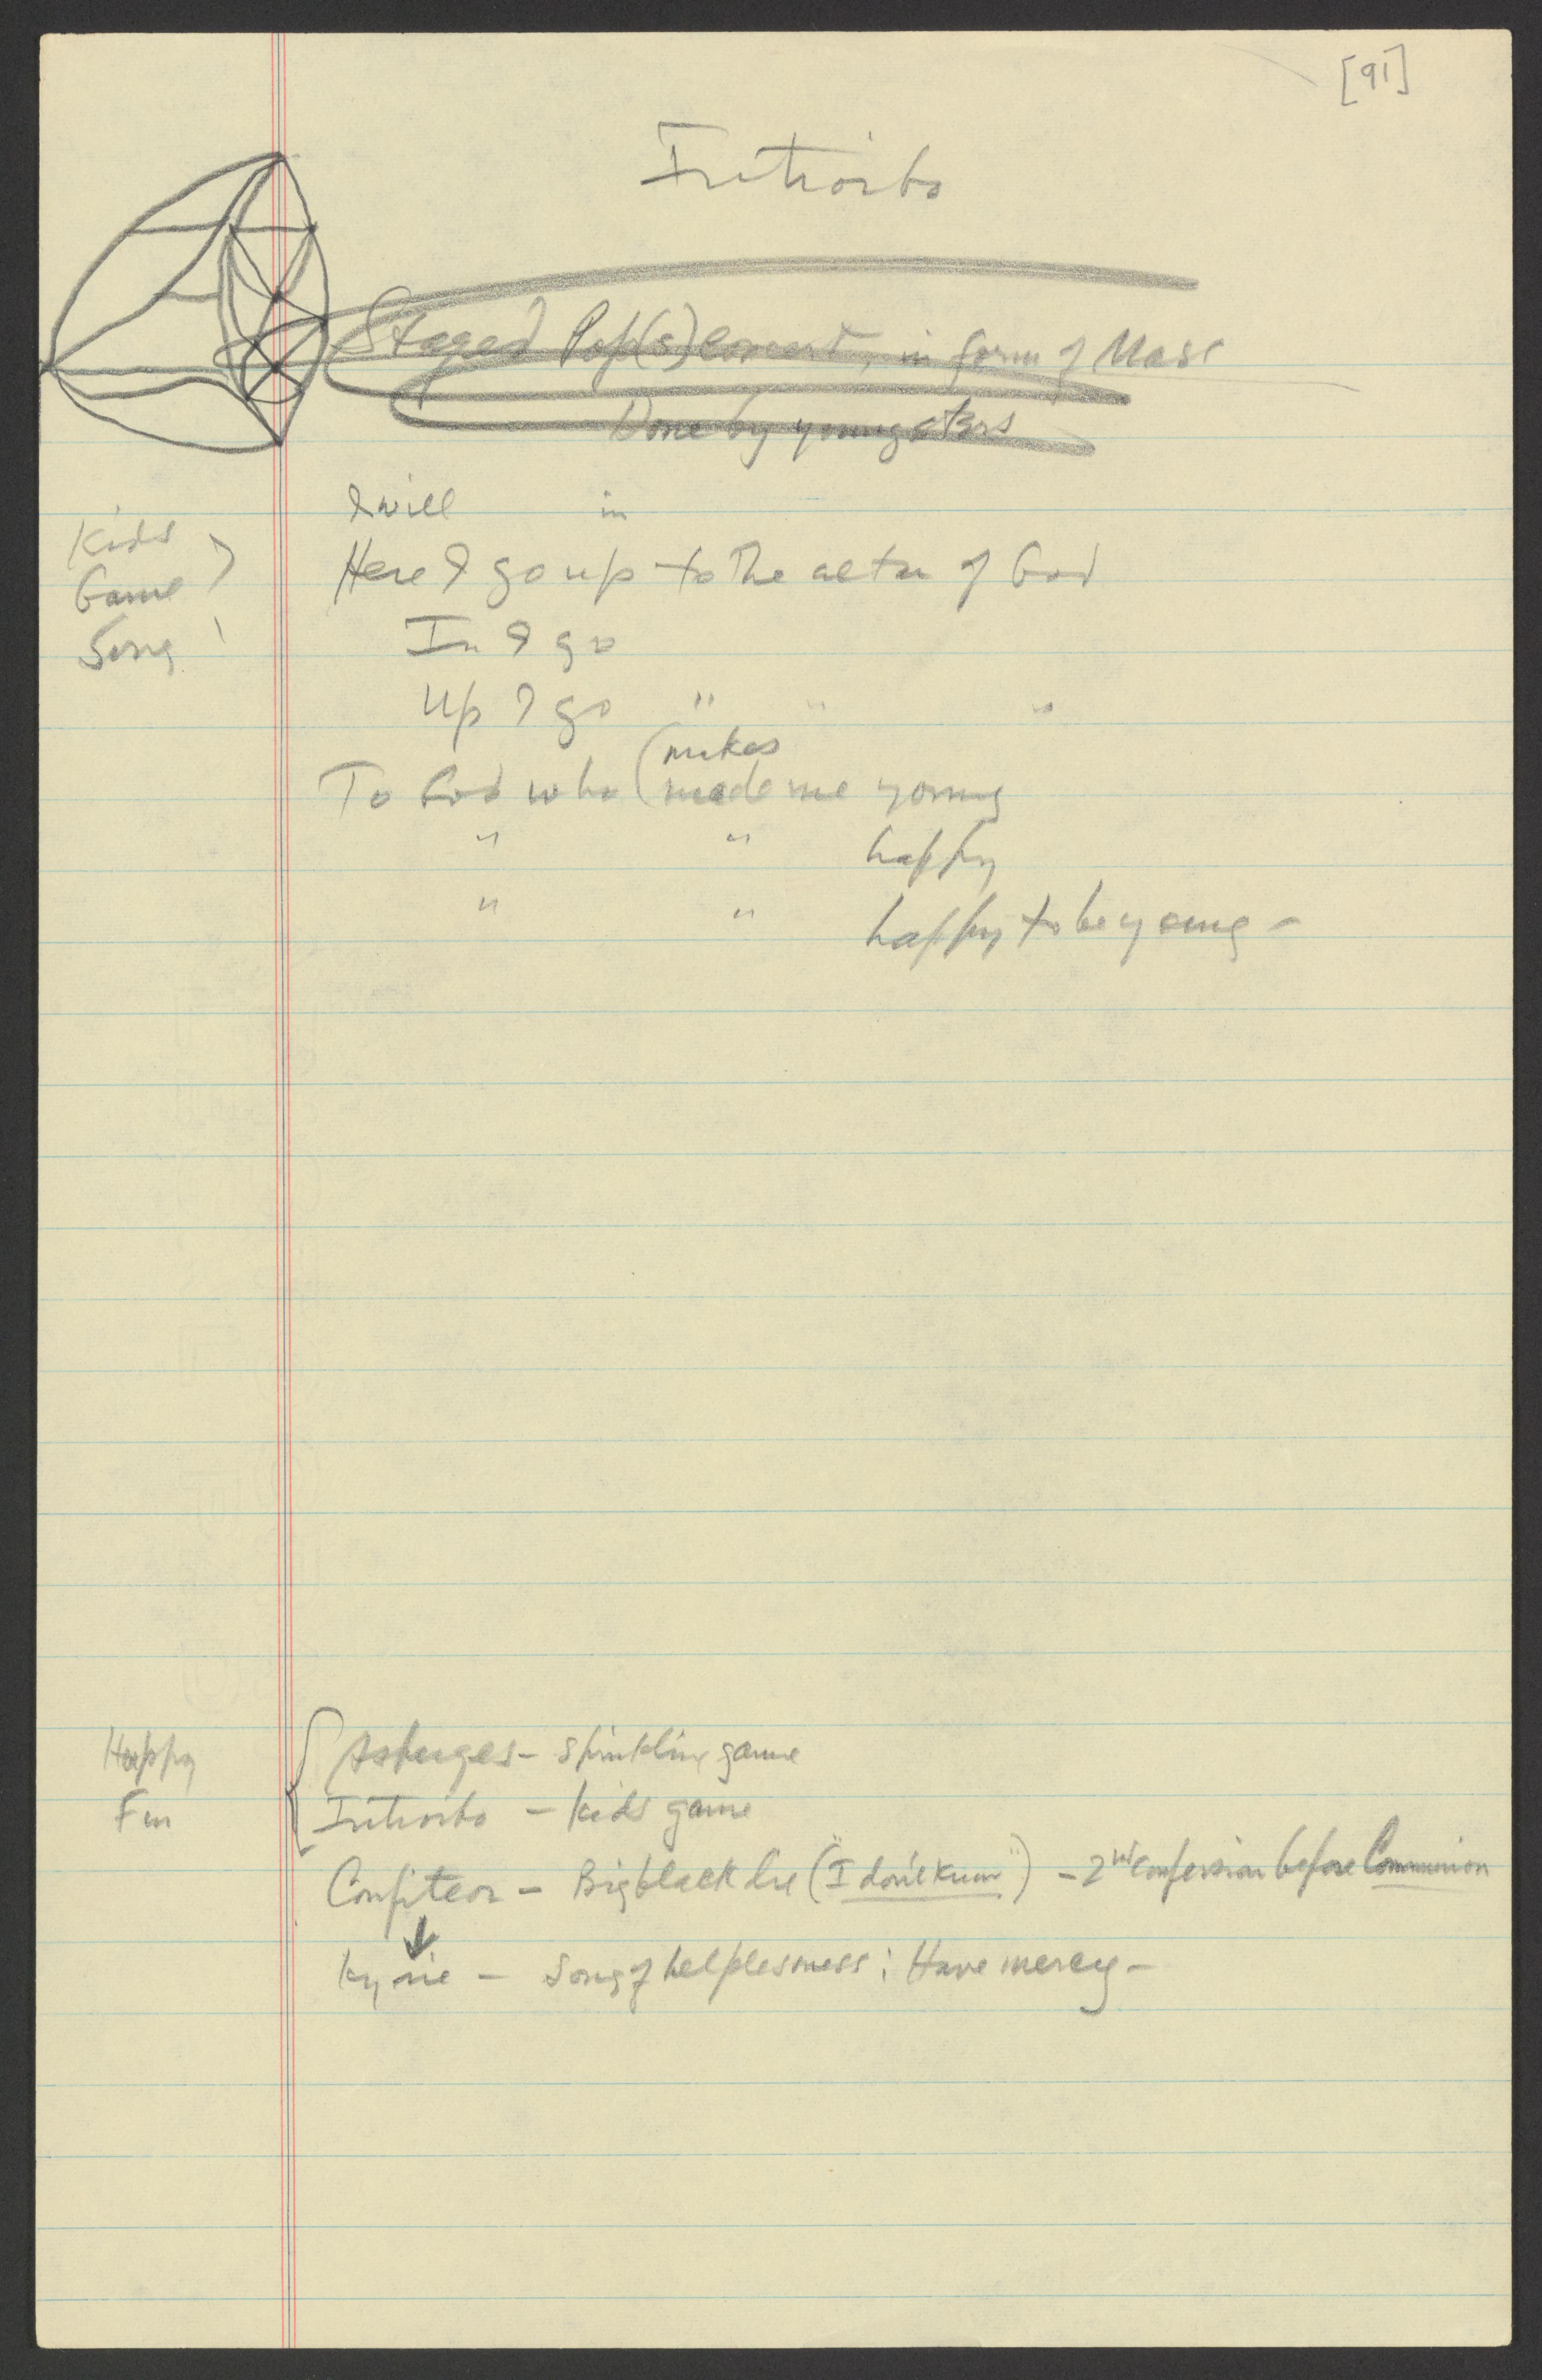 [91]
Introibo
Staged Pop(s) Concert, in form of Mass
Done by youngsters
I will in
Kids Game Song!
Here I go up to the altar of God
In I go
Up I go " " "
makes
To God who (made me young
" " happy
" " happy to be young –
Happy Fun
Asperges – sprinkling game
Introibo – kids game
Confiteor – Big black lie ("I don't know") – 2nd confession before Communion
Kyrie – Song of helplessness: Have mercy –